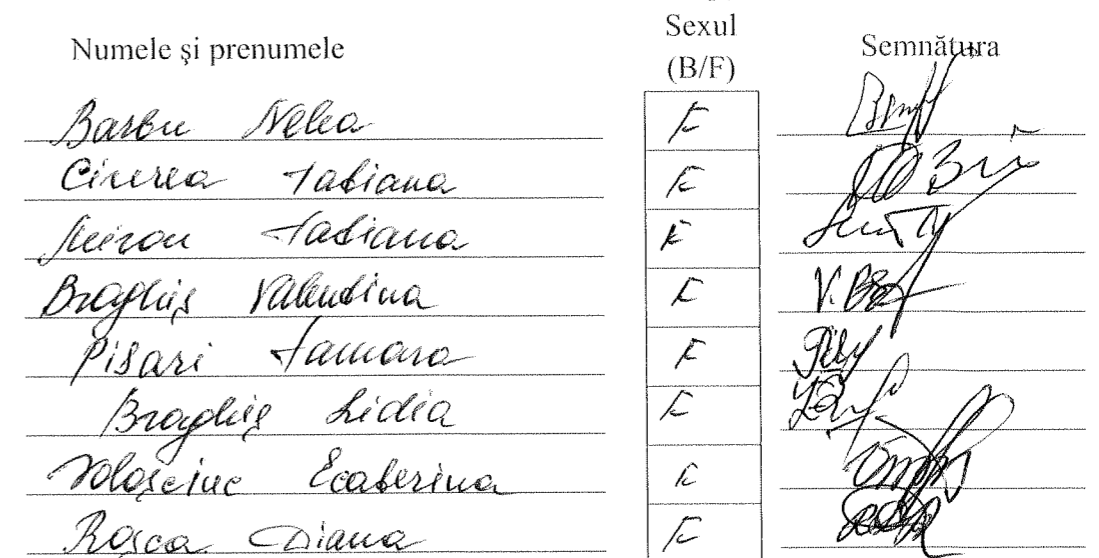 Numele şi prenumele Sexul (B/F) Semnătura
Barbu Nelea F
Cizerea Tatiana F
Miron Tatiana F
Braghiş Valentina F V. Br
Pisari Tamara F
Braghiş Lidia F
Voloşciuc Ecaterina F
Roşca Diana F